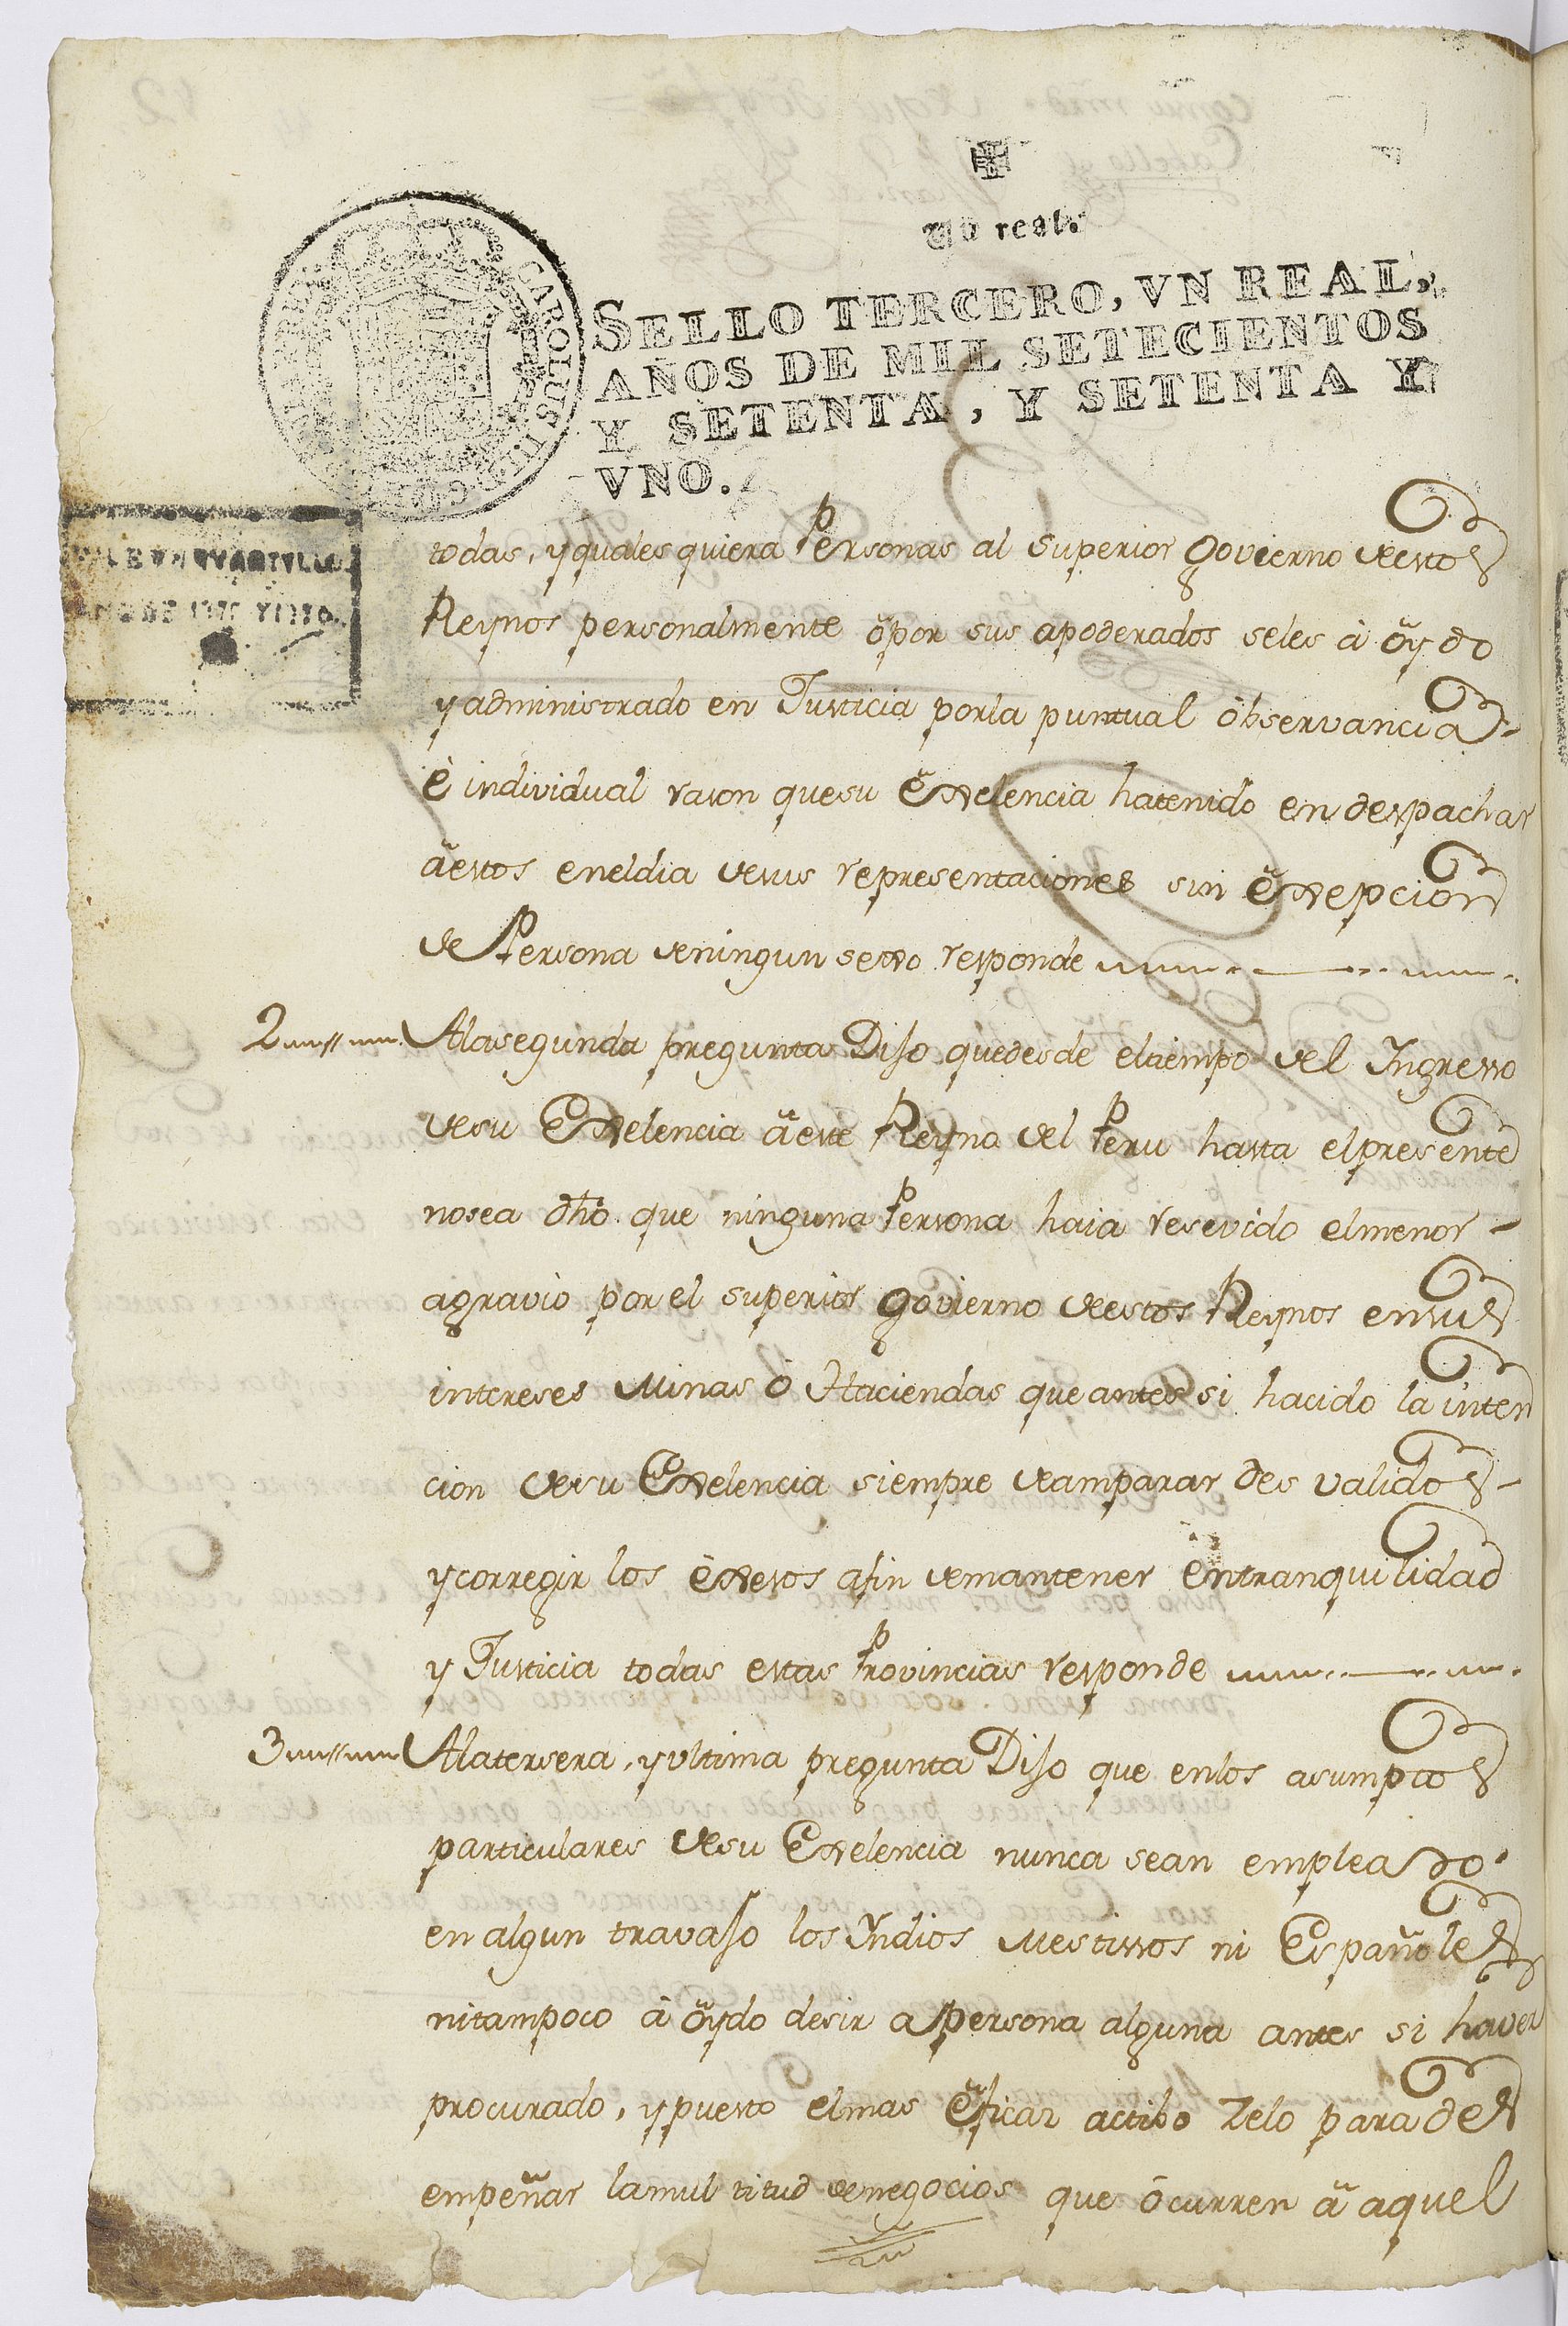 Un real.
SELLO TERCERO, VN REAL,
AÑOS DE MIL SETECIENTOS
Y SETENTA, Y SETENTA Y
VNO.
CAROLUS III
todas, y quales quiera Personas al Superior Govierno deestos
Reynos personalmente ô por sus apoderados seles à oydo
y administrado en Justicia porla puntual observancia
è individual rason quesu Exelencia hatenido en despachar
àestos eneldia desus representaciones sin exepcion
de Persona deningun sexo responde
2 Alasegunda pregunta Dijo quedesde eltiempo del Ingresso
desu Exelencia àeste Reyno del Peru hasta elpresente
nosea dho que ninguna Persona haia resevido elmenor
agravio por el superior Govierno deestos Reynos ensus
intereses Minas ò Haciendas que antes si hacido la inten
cion desu Exelencia siempre deamparar des validos
y corregir los exesos afin demantener entranquilidad
y Justicia todas estas Provincias responde
3 Alatersera, y vltima pregunta Dijo que enlos asumptos
particulares desu Exelencia nunca sean empleado
en algun travajo los Yndios Mestissos ni Españoles
nitampoco à oydo desir a persona alguna antes si haver
procurado, y puesto elmas eficaz actibo zelo para des
empeñar lamultitud denegocios que ocurren à aquel